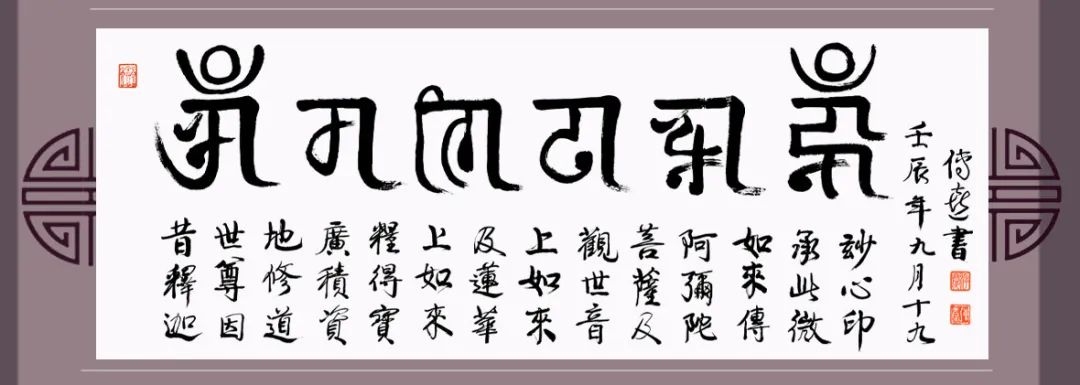 𑖌𑖼𑖦𑖜𑖰𑖢𑖟𑖿𑖦𑖸𑖮𑖳𑖽
昔釋迦
世尊因
地修道
廣積資
糧得寶
上如來
及蓮華
上如來
觀世音
菩薩及
阿彌陀
如來傳
承此微
玅心印
壬辰年九月十九
傳喜書